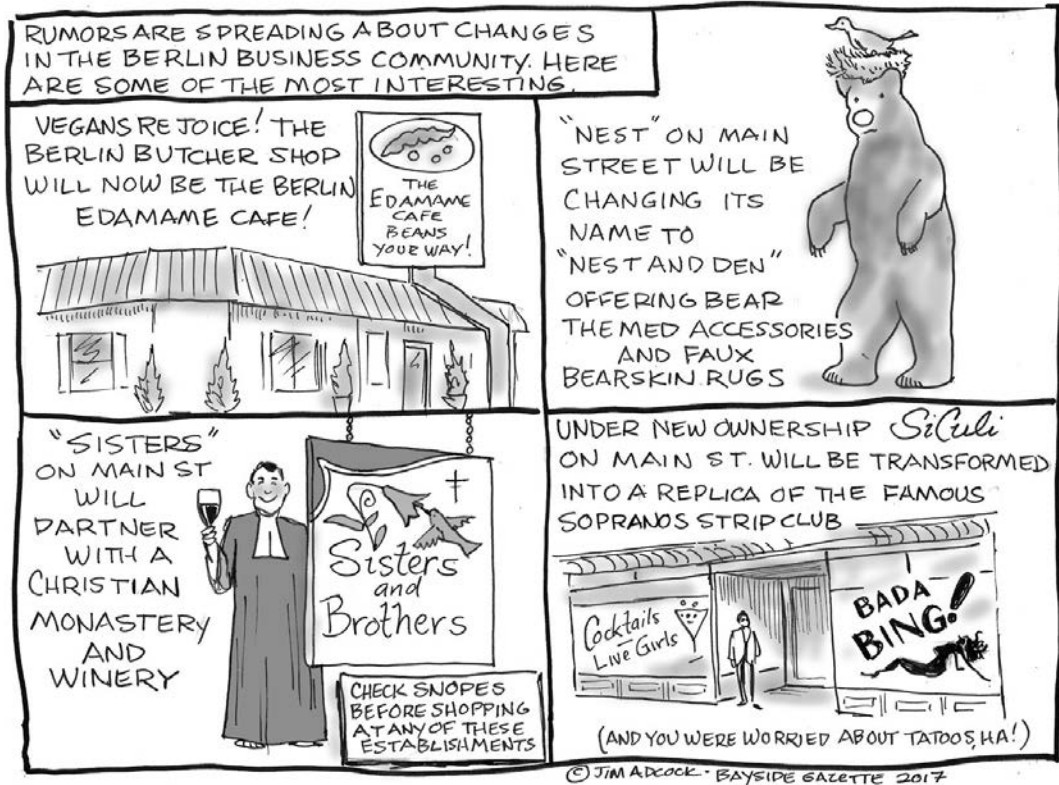 RUMORS ARE SPREADING ABOUT CHANGES
IN THE BERLIN BUSINESS COMMUNITY. HERE
ARE SOME OF THE MOST INTERESTING.
VEGANS REJOICE! THE
BERLIN BUTCHER SHOP
WILL NOW BE THE BERLIN
EDAMAME CAFE!
THE
EDAMAME
CAFE
BEANS
YOUR WAY!
"NEST" ON MAIN
STREET WILL BE
CHANGING ITS
NAME TO
"NEST AND DEN"
OFFERING BEAR
THEMED ACCESSORIES
AND FAUX
BEARSKIN RUGS
"SISTERS"
ON MAIN ST
WILL
PARTNER
WITH A
CHRISTIAN
MONASTERY
AND
WINERY
Sisters
and
Brothers
CHECK SNOPES
BEFORE SHOPPING
AT ANY OF THESE
ESTABLISHMENTS
UNDER NEW OWNERSHIP SiCuli
ON MAIN ST. WILL BE TRANSFORMED
INTO A REPLICA OF THE FAMOUS
SOPRANOS STRIP CLUB
Cocktails
Live Girls
BADA
BING!
(AND YOU WERE WORRIED ABOUT TATOOS, HA!)
© JIM ADCOCK · BAYSIDE GAZETTE 2017